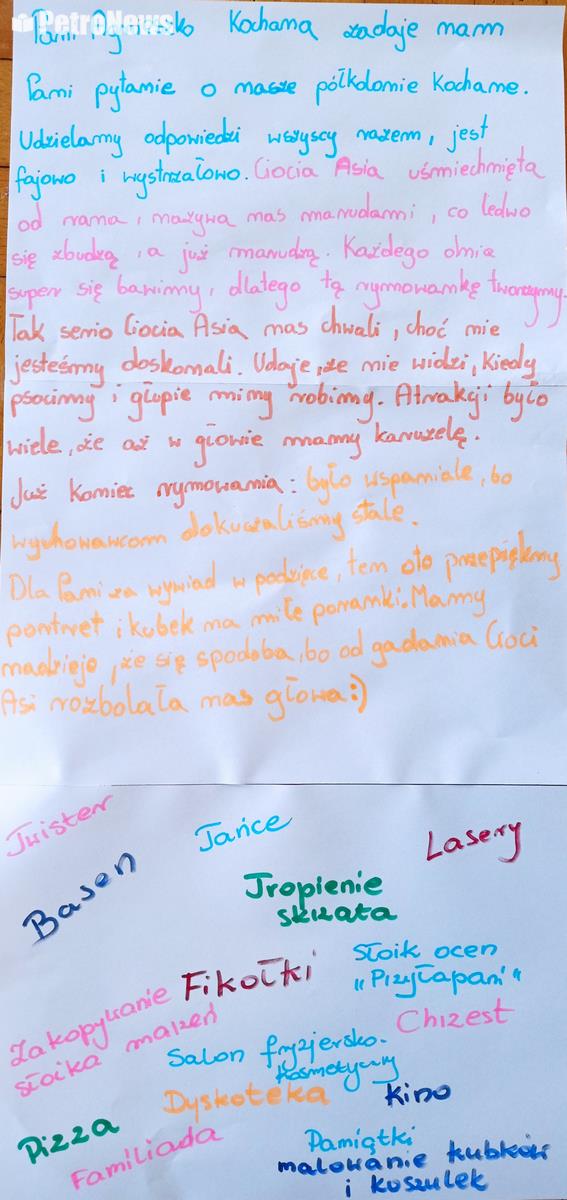 PetroNews
Pani Kochana zadaje nam
Pani pytanie o nasze półkolonie kochane.
Udzielamy odpowiedzi wszyscy razem, jest
fajowo i wystrzałowo. Ciocia Asia uśmiechnięta
od rana, nazywa nas marudami, co ledwo
się zbudzą, a już marudzą. Każdego dnia
super się bawimy, dlatego tą rymowankę tworzymy.
Tak serio Ciocia Asia nas chwali, choć nie
jesteśmy doskonali. Udaje, że nie widzi, kiedy
psocimy i głupie miny robimy. Atrakcji było
wiele, że aż w głowie mamy karuzelę.
Już koniec rymowania: było wspaniale, bo
wychowawcom dokuczaliśmy stale.
Dla Pani za wywiad w podzięce, ten oto przepiękny
portret i kubek na miłe poranki. Mamy
nadzieję, że się spodoba, bo od gadania Cioci
Asi rozbolała nas głowa:)
Twister
Tańce
Lasery
Basen
Tropienie
skrzata
Słoik ocen
"Przyłapani"
Fikołki
Zakopywanie
słoika marzeń
Chrzest
Salon fryzjersko-
kosmetyczny
Dyskoteka
Kino
Pizza
Familiada
Pamiątki
malowanie kubków
i koszulek